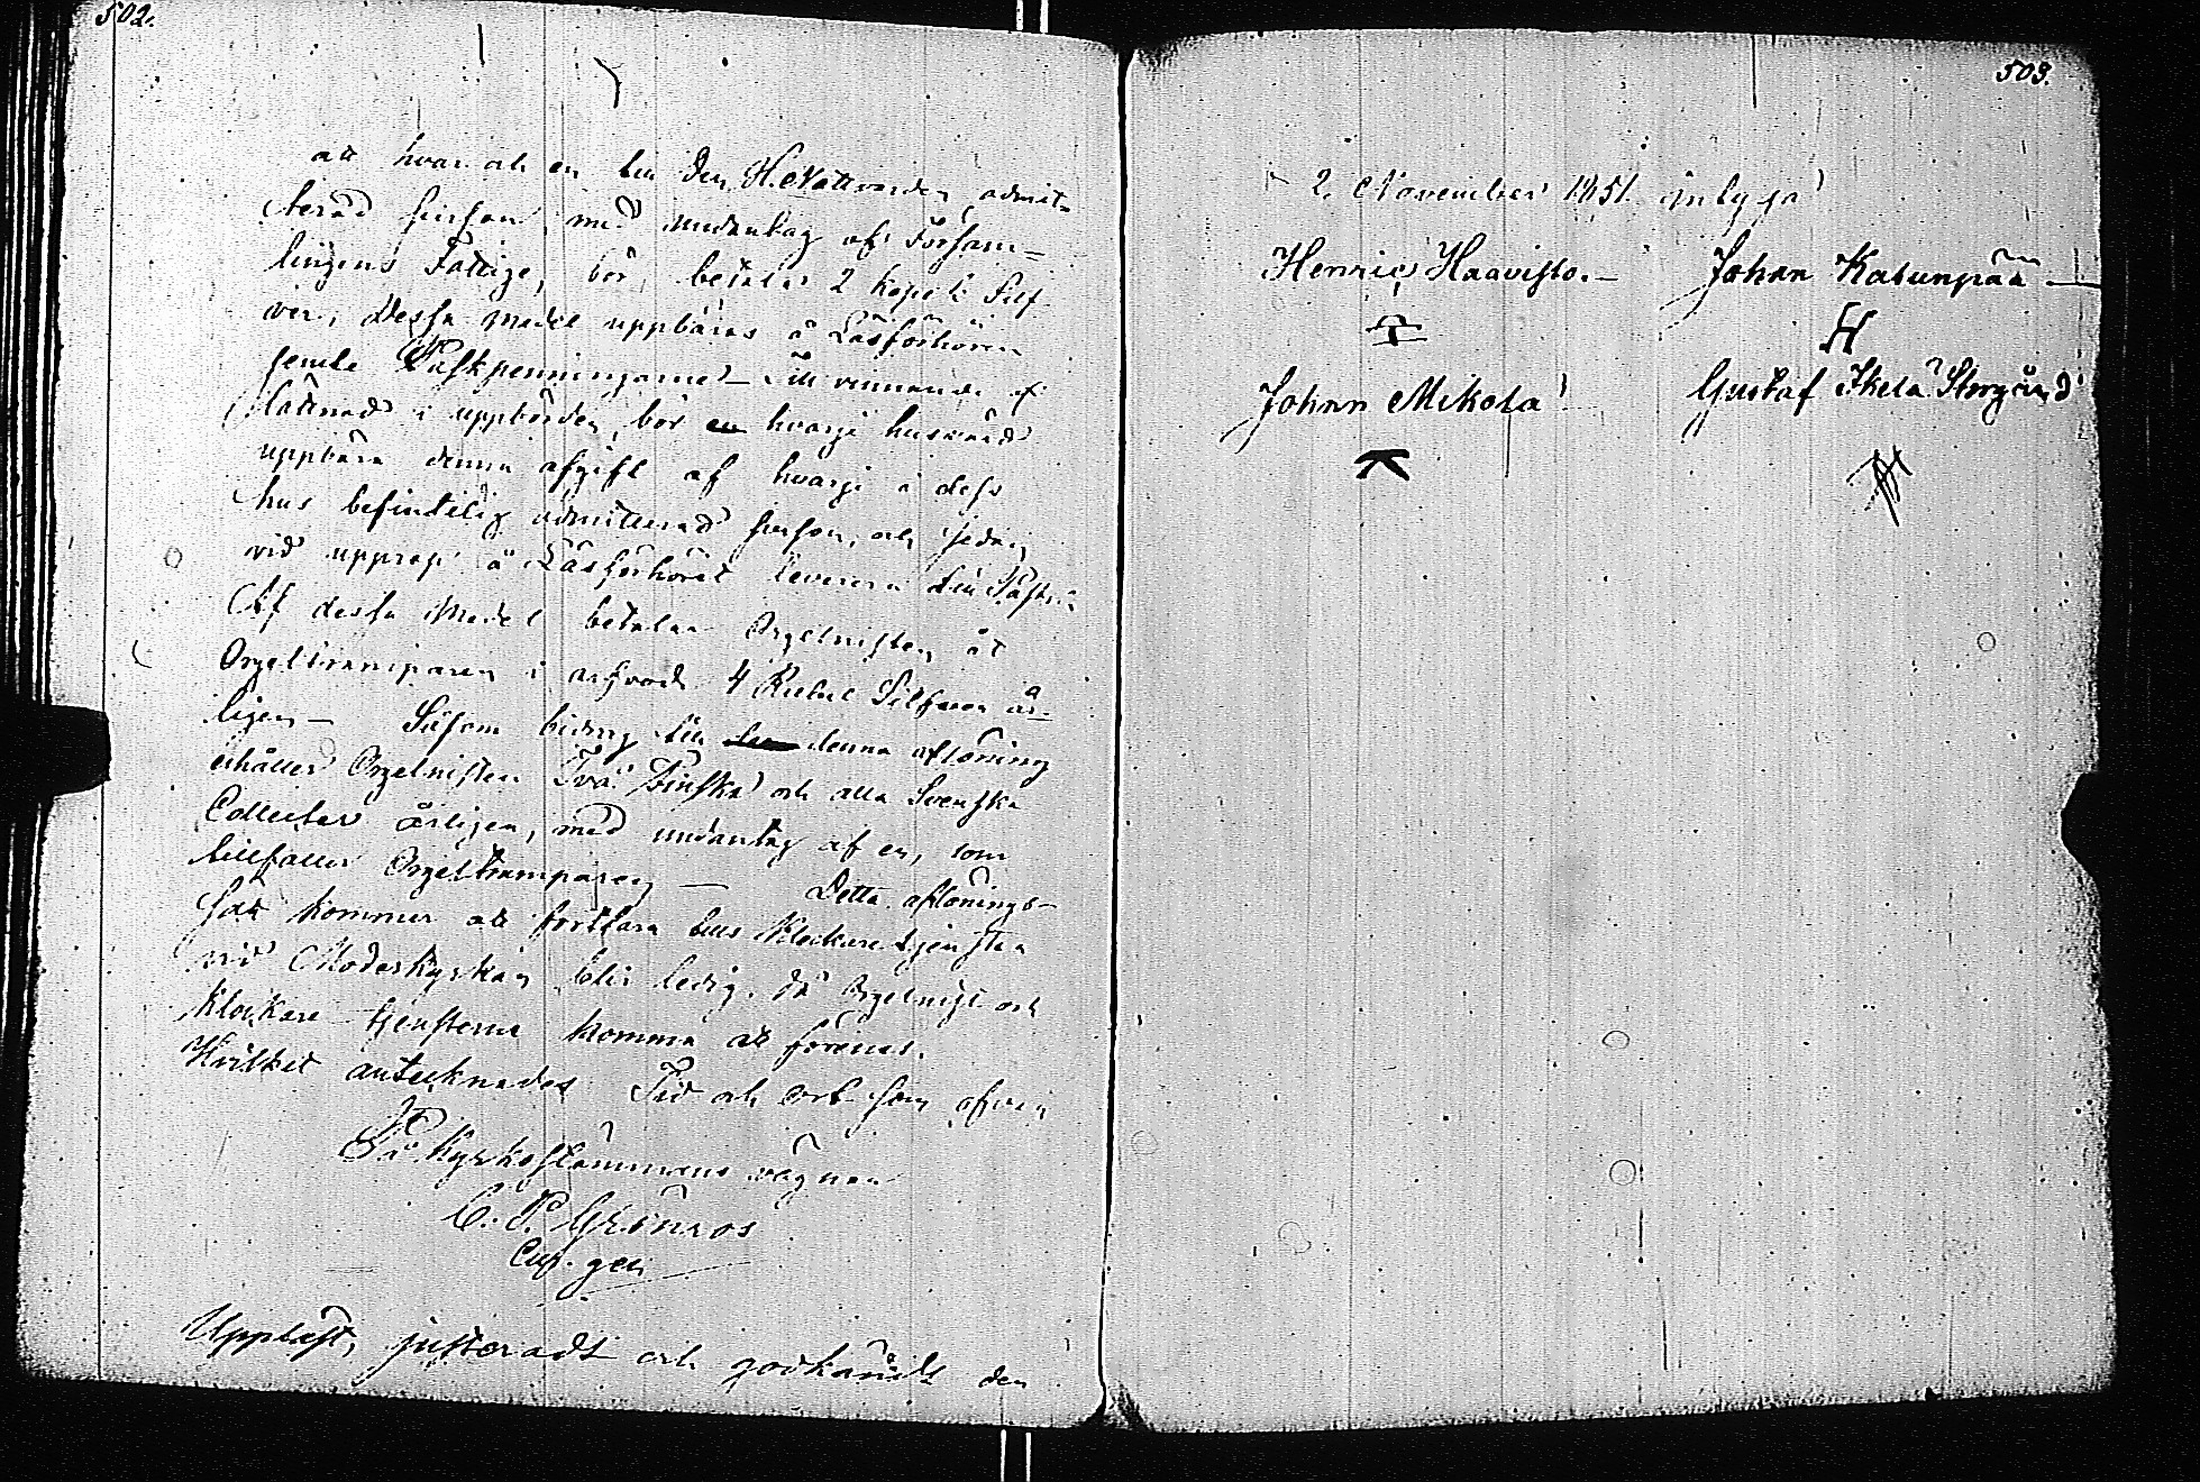 502.
att hvar och en till den H. Nattvarden admit-
terad person, med undantag af Försam-
lingens Fattige, bör betala 2 kopek Silf-
ver; dessa medel uppbäras å Läsförhören
jemte Påskpenningarne – Till vinnande af
lättnad i uppbörden, bör hvarje husbond
uppbära denna afgift af hvarje i dess
hus befintelig admitterad person, och sedan
vid upprop å Läsförhöret leverera till
Af dessa Medel betalar Orgelnisten åt
Orgeltramparen i arfvode 4 Rubel Silfver år-
ligen – Såsom bidrag till denna aflöning
erhåller Orgelnisten Två Finska och alla Svenska
Collecter årligen, med undantag af en, som
tillfaller Orgeltramparen – Detta aflönings-
sätt kommer att fortfara tills Klockare tjensten
vid Moderkyrkan blir ledig, då Orgelnist och
Klockare tjensterna komma att förenas.
Hvilket antecknades Tid och ort som ofvan
På Kyrkostämmans vägnar
C. P. Grönroos
Uppläst, justeradt och godkändt den
503.
2. November 1851. intyga
Henric Haavisto. – Johan Katunpää –
H
Johan Mikola Gustaf Ikela Storgård